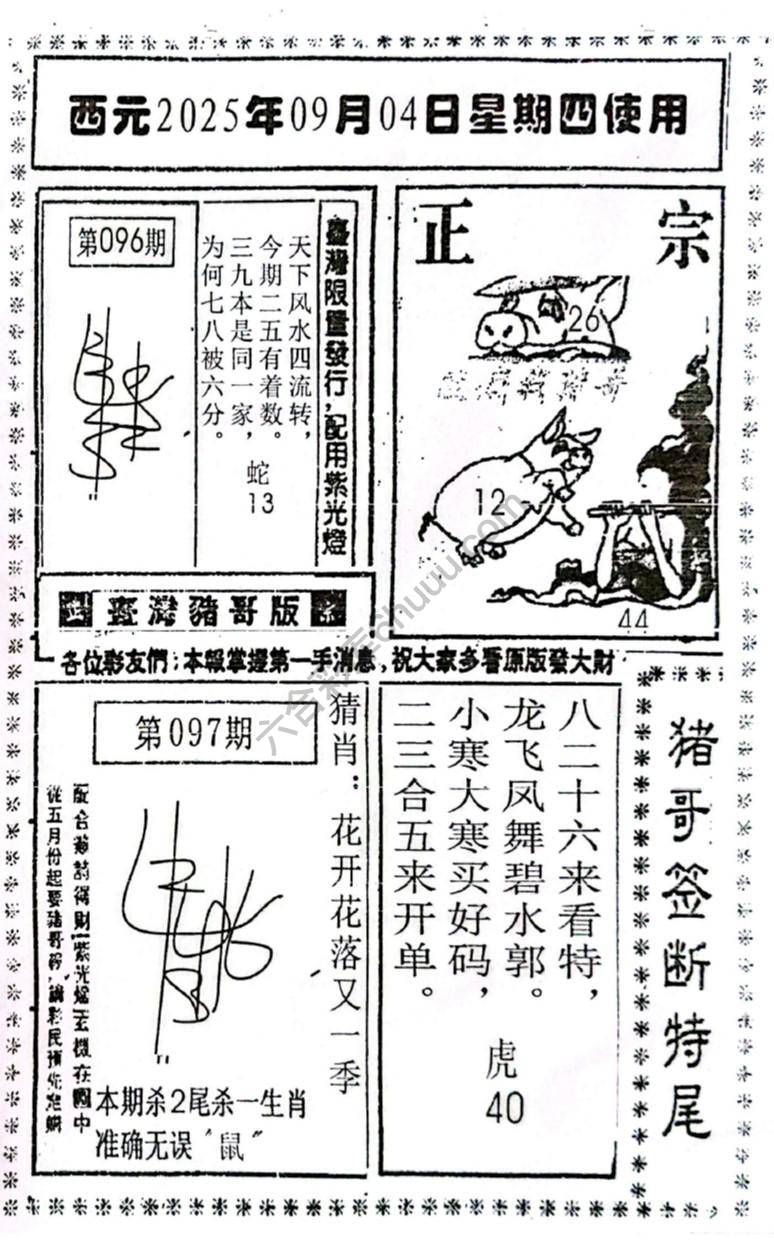 西元2025年09月04日星期四使用
第096期
天下风水四流转，
今期二五有着数。
三九本是同一家，
为何七八被六分。
蛇
13
臺灣限量發行，配用紫光燈
正宗
26
12
44
臺灣豬哥版
各位彩友們：本報掌握第一手消息，祝大家多看原版發大財
第097期
猜肖：花开花落又一季
配合彩詩得財紫光燈玄機在圖中
從五月份起要豬哥
彩民預先定購
本期杀2尾杀一生肖
准确无误"鼠"
八二十六来看特，
龙飞凤舞碧水郭。
小寒大寒买好码，
二三合五来开单。
虎
40
猪哥签断特尾
六合彩库chuuu.com